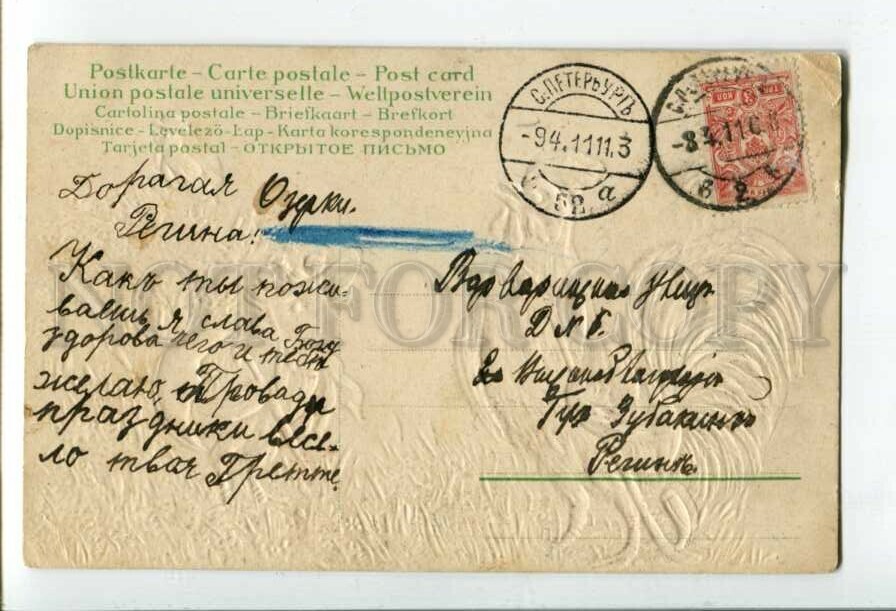 Postkarte – Carte postale – Post card
Union postale universelle – Weltpostverein
Cartolina postale – Briefkaart – Brefkort
Dopisnice – Levelező-Lap – Karta korespondencyjna
Tarjeta postal – ОТКРЫТОЕ ПИСЬМО
С.ПЕТЕРБУРГЪ
-94.1111.3
а
-84.11
3 КОП
Дорагая Озерки.
Регина!
Какъ ты пожи-
ваешь я слава Богу
здорова чего и тебѣ
желаю, Провади
праздники весе-
ло твая Гретте
улица
Д № 6.
Зубакинъ
Регинѣ
NOT FOR COPY